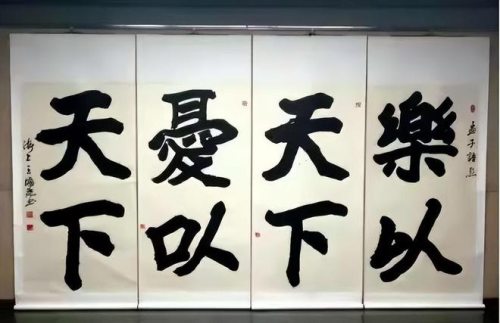 孟子語
樂以
天下
憂以
天下
海上